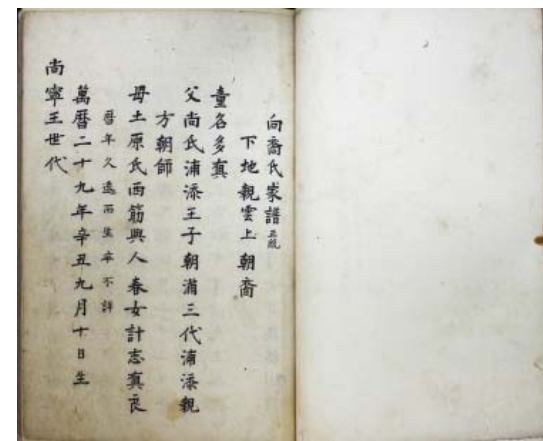 向裔氏家譜 正統
下地親雲上朝裔
童名多真
父尚氏浦添王子朝満三代浦添親
方朝師
母土原氏西筋與人春女計志真良
暦年久遠而生卒不詳
萬暦二十九年辛丑九月十日生
尚寧王世代